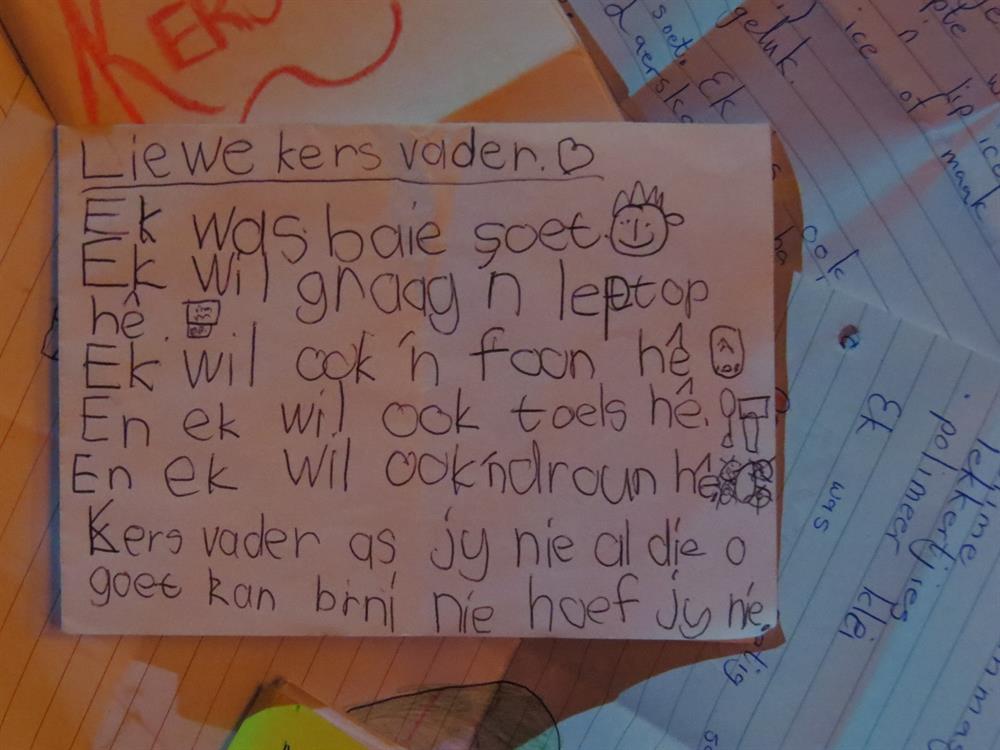 KERS
Liewe kers vader.
Ek was baie soet.
Ek wil graag 'n leptop
hê.
Ek wil ook 'n foon hê
En ek wil ook toels hê.
En ek wil ook 'n droun hê
Kers vader as jy nie al die o
goet kan brni nie hoef jy nie.
soet. Ek
geluk.
ice
of
'n
lip ice
maak
ook
Ek was
polimeer klei
lekkertjies